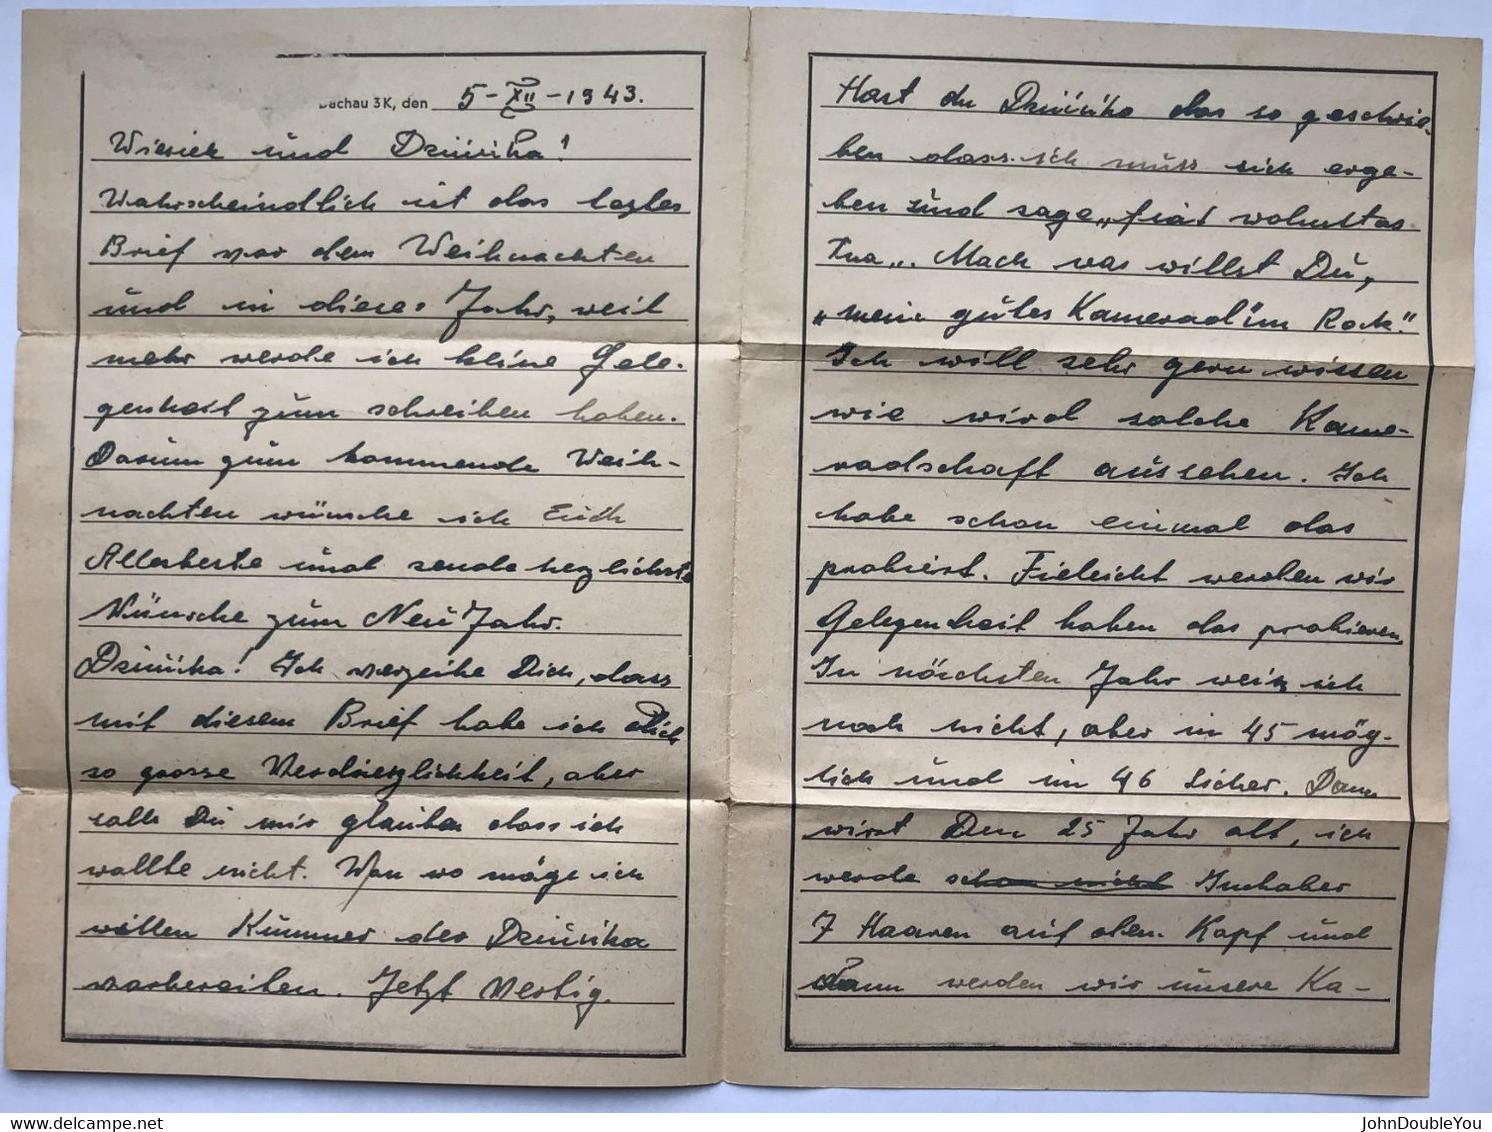 Dachau 3K, den 5-XII-1943.
Wiesiek und Dziunka!
Wahrscheindlich ist das leztes
Brief vor dem Weihnachten
und in dieses Jahr, weil
mehr werde ich keine Gele-
genheit zum schreiben haben.
Darum zum kommende Weih-
nachten wünsche ich Euch
Allesbeste und sende herzlichste
Wünsche zum Neu Jahr.
Dziunka! Ich verzeihe Dich, dass
mit diesem Brief habe ich Dich
so grosse Verdrieszlichkheit, aber
sollst Du mir glauben dass ich
wollte nicht. Wan wo möge ich
willen Kummer der Dziunka
vorbereiten. Jetzt Vertig.
Hast du Dziunka das so geschrie-
ben dass ich muss sich erge-
ben und sage „fiat voluntas
Tua„. Mach was willst Du,
„mein gutes Kamerad im Rock."
Ich will sehr gern wissen
wie wird solche Kame-
radschaft aussehen. Ich
habe schon einmal das
probiert. Fieleicht werden wir
Gelegenheit haben das probieren.
In nöchsten Jahr weis ich
noch nicht, aber in 45 mög-
lich und in 46 sicher. Dann
wirst Du 25 Jahr alt, ich
werde schon nicht Inhaber
7 Haaren auf den Kopf und
dann werden wir unsere Ka-
JohnDoubleYou
delcampe.net